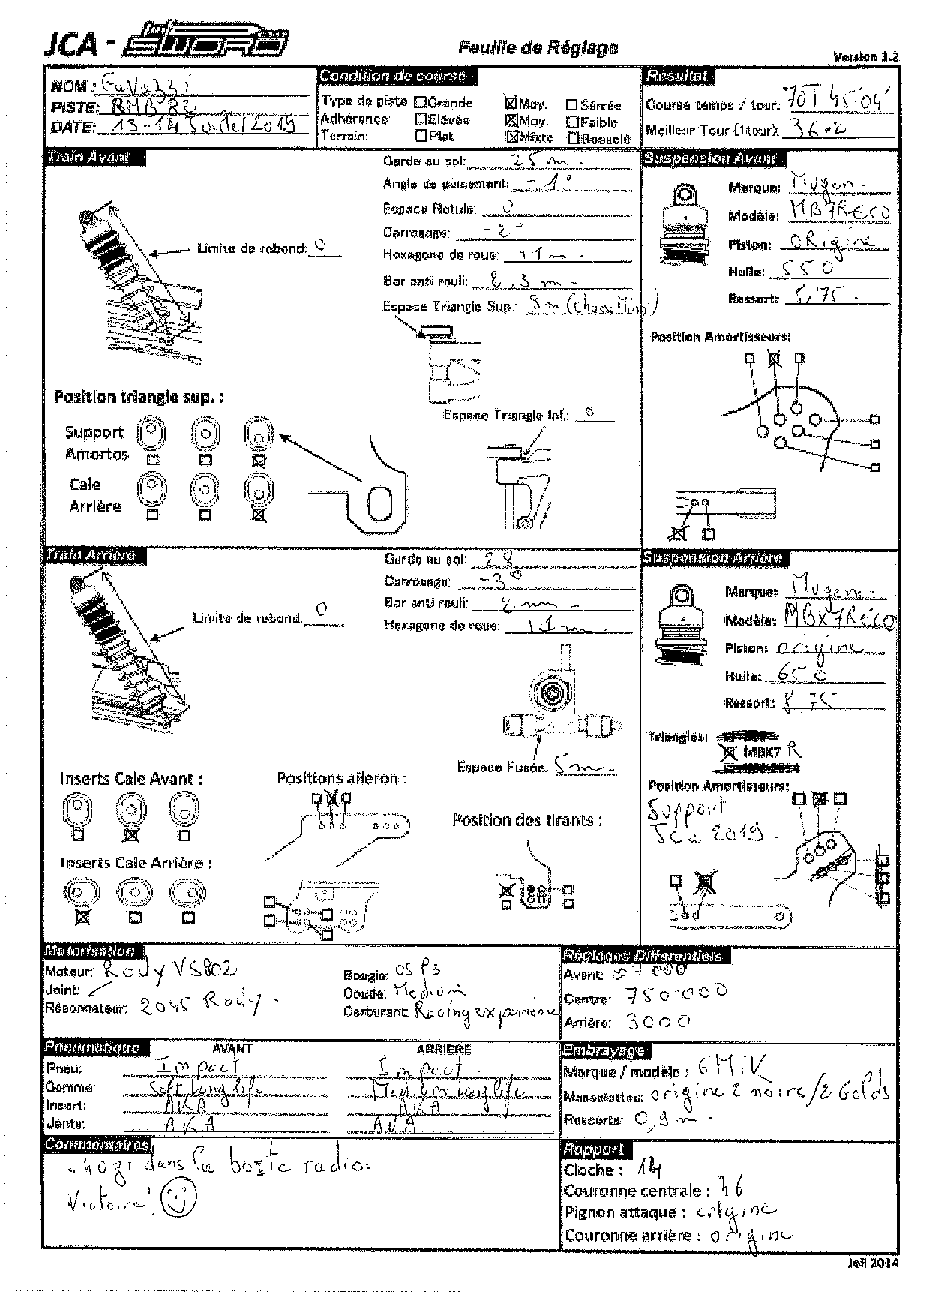 JCA - SWORD
Feuille de Réglage
Version 1.2
NOM : Favazzi
PISTE: RMB 82
DATE: 13-14 2019
Condition de course
Type de piste Grande Moy. Sérrée
Adhérence: Elevée Moy. Faible
Terrain: Plat Mixte Bosselé
Résultat
Course temps / tour: 70T 45'04'
Meilleur Tour (1tour): 36.2
Train Avant
Limite de rebond: 0
Garde au sol: 25 m.
Angle de -1°
Espace Rotule: 0
Carrossage: -2°
Hexagone de roue: 11 m.
Bar anti rouli: 2,3 m.
Espace Triangle Sup.:
Espace Triangle Inf.: 0
Position triangle sup. :
Support
Amortos
Cale
Arrière
Suspension Avant
Marque: Mugen
Modèle: MB7RECO
Piston: ORigine
Huile: 550
Ressort: 8,75
Position Amortisseurs:
Train Arrière
Limite de rebond: 0
Garde au sol: 28
Carrossage: -3°
Bar anti rouli: 2 mm.
Hexagone de roue: 11 m.
Espace Fusée: 5 m.
Inserts Cale Avant :
Inserts Cale Arrière :
Positions aileron :
Position des tirants :
Suspension Arrière
Marque: Mugen
Modèle: MBX7Reco
Piston: origine
Huile: 650
Ressort: 8,75
Triangles:
MBX7 R
Position Amortisseurs:
Support
JCA 2019
Motorisation
Moteur: Rody VS802
Joint:
Résonnateur: 2045 Rody.
Bougie: OS P3
Coude: Medium
Carburant: Racing experience
Réglages Differentiels
Avant: 7000
Centre: 750000
Arrière: 3000
Pneumatique
AVANT ARRIERE
Pneu: Impact Impact
Gomme: Soft long life Medium long life
Insert: AKA AKA
Jante: AKA AKA
Embrayage
Marque / modèle : 6MIK
Masselottes: origine 2 noires/2 Golds
Ressorts: 0,9 m.
Commentaires
40gr dans la boite radio.
Victoire!
Rapport
Cloche : 14
Couronne centrale : 46
Pignon attaque : origine
Couronne arrière : origine
Jeff 2014